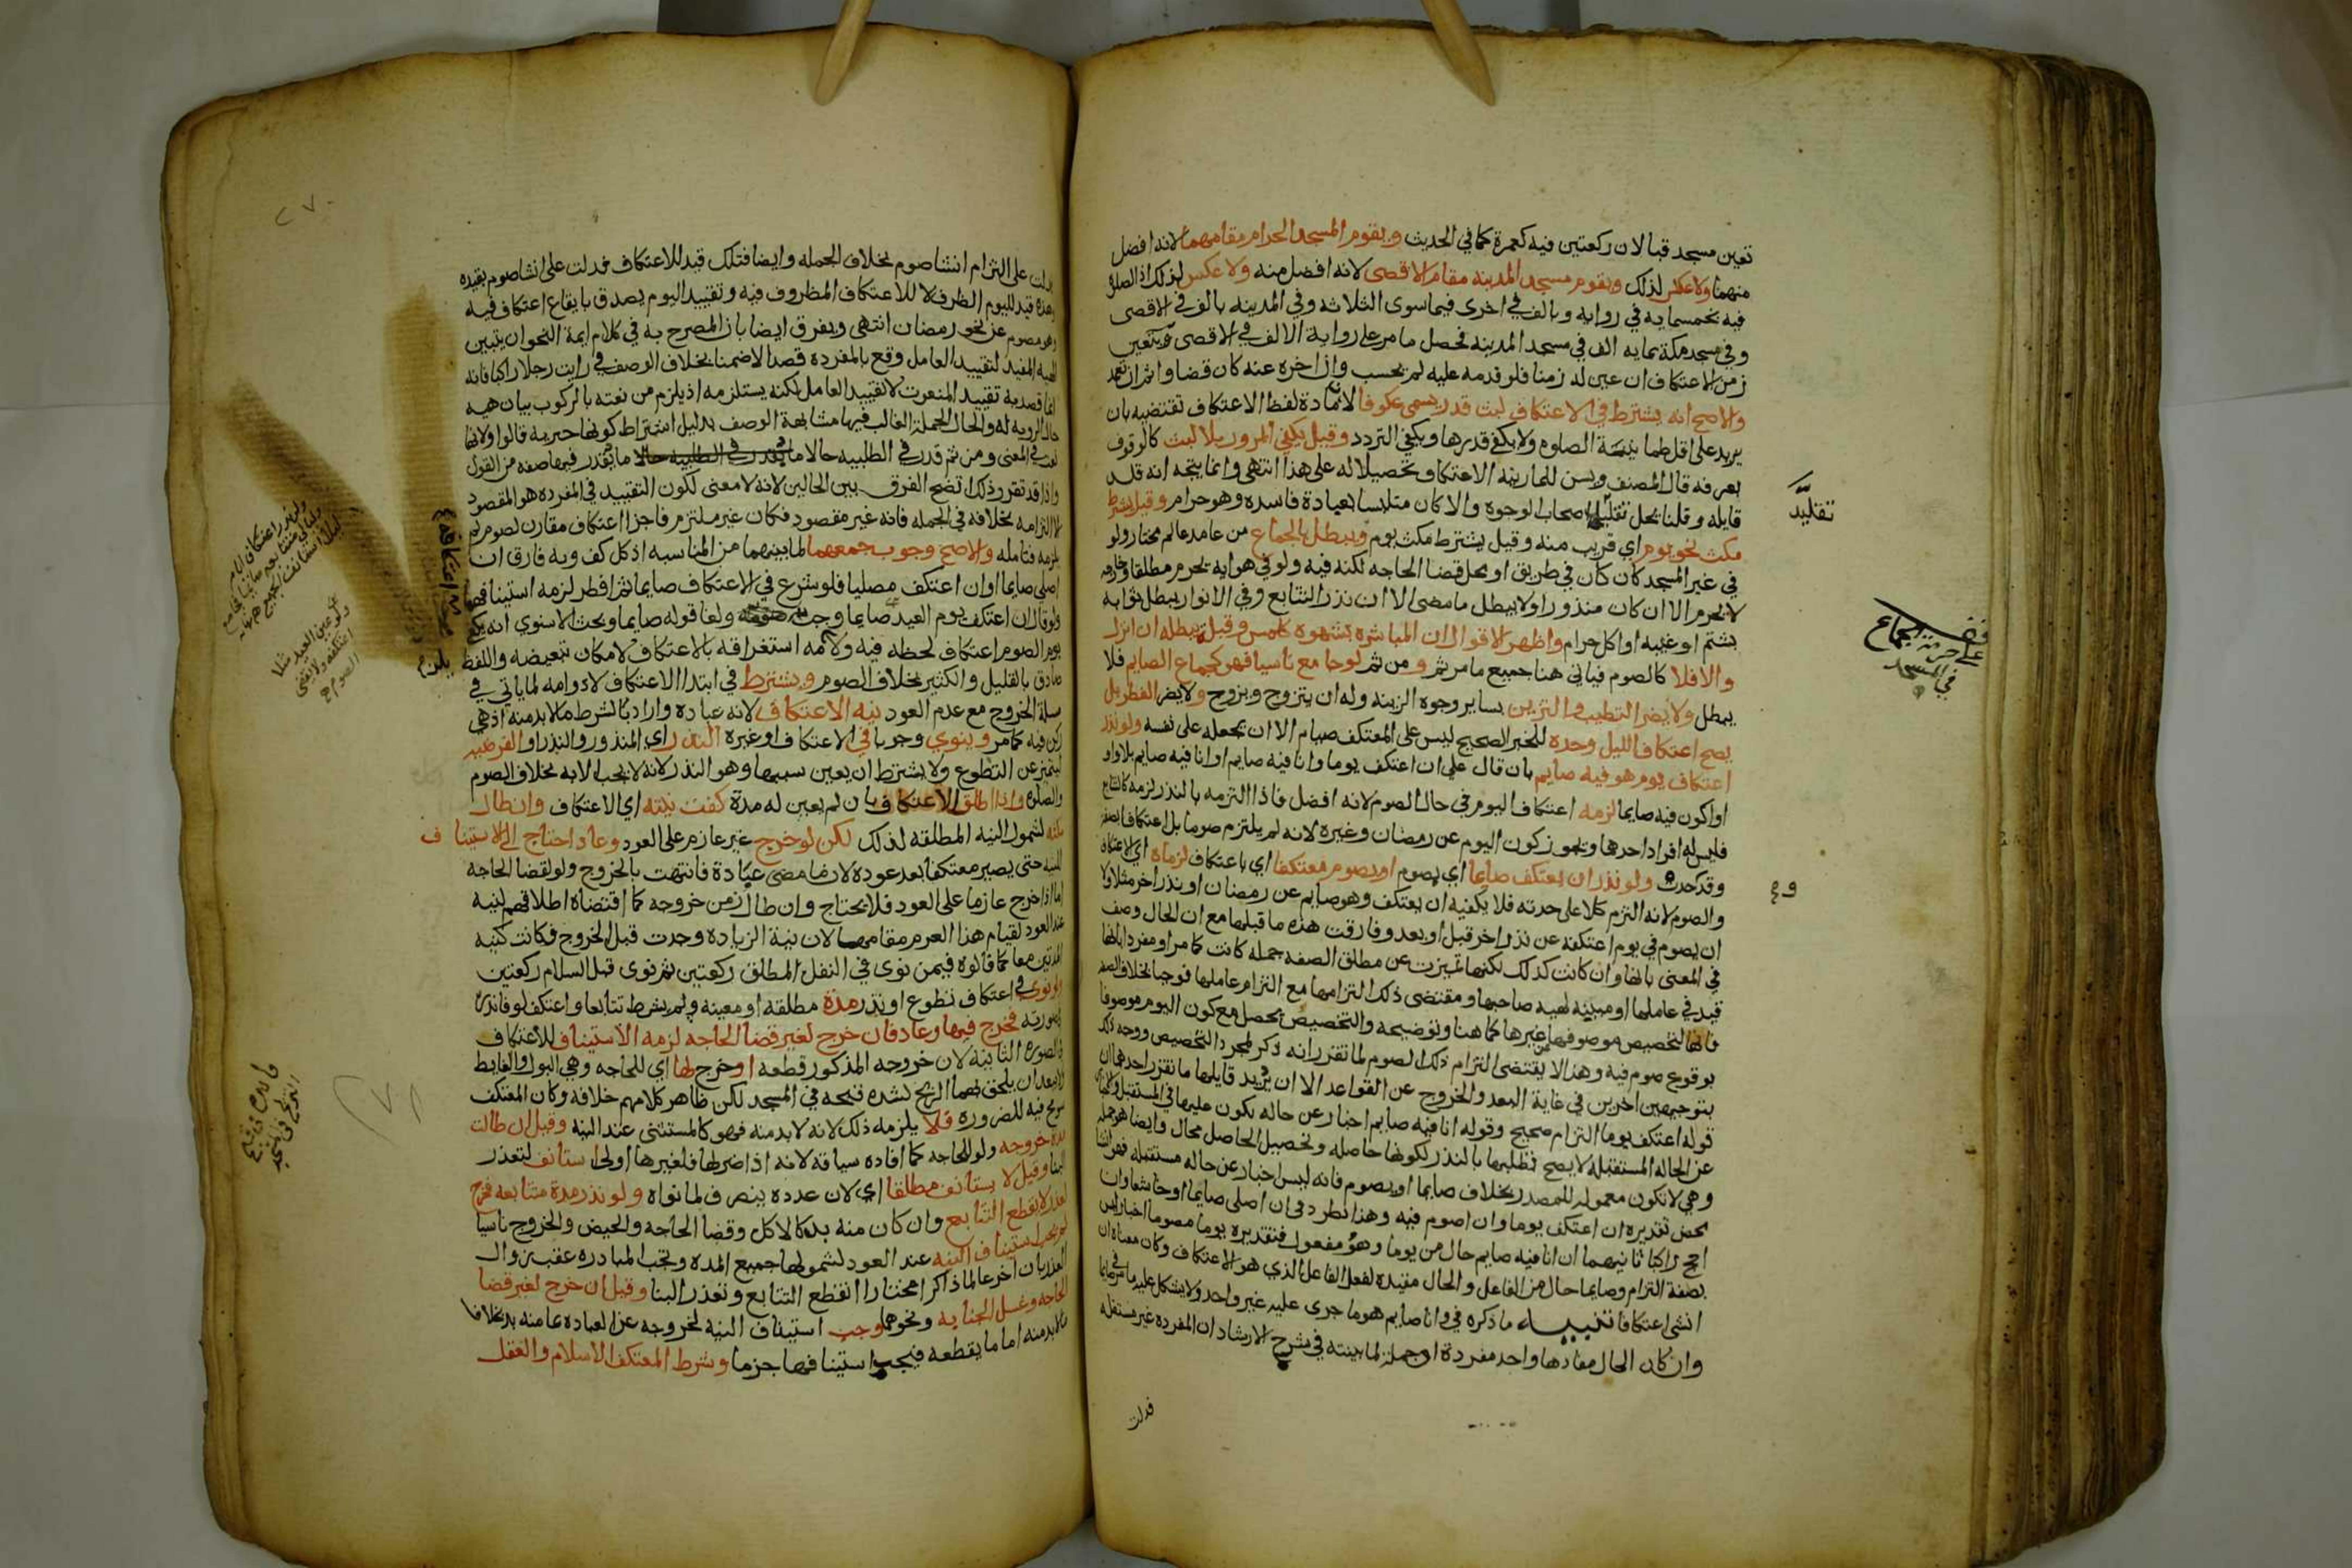 تعين مسجد قبا لان ركعتين فيه كعمرة كما في الحديث ويقوم المسجد الحرام مقامهما لانه افضل
منهما ولا عكس لذلك ويقوم مسجد المدينه مقام الاقصى لانه افضل منه ولا عكس لذلك اذ الصلاة
فيه بخمسمايه في روايه وبالف في اخرى فيما سوى الثلاثه وفي المدينه بالف في الاقصى
وفي مسجد مكة بمايه الف في مسجد المدينه فحصل ما مر على رواية الالف في الاقصى ويتعين
زمن الاعتكاف ان عين له زمنا فلو قدمه عليه لم يحسب وان اخره عنه كان قضا واثم ان تعمد
والاصح انه يشترط في الاعتكاف لبث قدر يسمى عكوفا لان مادة لفظ الاعتكاف تقتضيه بان
يزيد على اقل طمانينة الصلوه ولا يكفي قدرها ويكفي التردد وقيل يكفي المرور بلا لبث كالوقوف
بعرفه قال المصنف ويسن للمار نية الاعتكاف تحصيلا له على هذا انتهى وانما يتجه انه قلد
قايله وقلنا بحل تقليد اصحاب الوجوه والا كان متلبسا بعبادة فاسده وهو حرام وقيل يشترط
مكث نحو يوم اي قريب منه وقيل يشترط مكث يوم ويبطل بالجماع من عامد عالم مختار ولو
في غير المسجد كان كان في طريق او محل قضا الحاجه لكنه فيه ولو في هوايه يحرم مطلقا وخارجه
لا يحرم الا ان كان منذورا ولا يبطل ما مضى الا ان نذر التتابع وفي الانوار يبطل ثوابه
بشتم او غيبه او اكل حرام واظهر الاقوال ان المباشره بشهوه كلمس وقبلة تبطله ان انزل
والا فلا كالصوم فياتي هنا جميع ما مر ثم ومن ثم لو جامع ناسيا فهو كجماع الصايم فلا
يبطل ولا يضر التطيب والتزين بساير وجوه الزينه وله ان يتزوج ويزوج ولا يضر الفطر بل
يصح اعتكاف الليل وحده للخبر الصحيح ليس على المعتكف صيام الا ان يجعله على نفسه ولو نذر
اعتكاف يوم هو فيه صايم بان قال علي ان اعتكف يوما وانا فيه صايم او انا فيه صايم بلا واو
او اكون فيه صايما لزمه اعتكاف اليوم في حال الصوم لانه افضل فاذا التزمه بالنذر لزمه كالتتابع
فليس له افراد احدها ويجوز كون اليوم عن رمضان وغيره لانه لم يلتزم صوما بل اعتكافا بصفة
وقد وجدت ولو نذر ان يعتكف صايما اي بصوم او يصوم معتكفا اي باعتكاف لزماه اي الاعتكاف
والصوم لانه التزم كلا على حدته فلا يكفيه ان يعتكف وهو صايم عن رمضان او نذر اخر مثلا ولا
ان يصوم في يوم اعتكفه عن نذر اخر قبل او بعد وفارقت هذه ما قبلها مع ان الحال وصف
في المعنى بانها وان كانت كذلك لكنها تميزت عن مطلق الصفه جمله كانت كما مر او مفرده بانها
قيد في عاملها او مبينه لهيه صاحبها ومقتضى ذلك التزامها مع التزام عاملها فوجبا بخلاف الصفه
فانها لتخصيص موصوفها عن غيرها كما هنا وتوضيحه والتخصيص يحصل مع كون اليوم موصوفا
بوقوع صوم فيه وهذا لا يقتضي التزام ذلك الصوم لما تقرر انه ذكر لمجرد التخصيص ووجه ذلك
بتوجيهين اخرين في غاية البعد والخروج عن القواعد الا ان يريد قايلها ما تقرر احدهما ان
قوله اعتكف يوما التزام صحيح وقوله انا فيه صايم اخبار عن حاله يكون عليها في المستقبل
عن الحاله المستقبله لا يصح تطلبها بالنذر لكونها حاصله وتحصيل الحاصل محال وايضا هو جمله
وهي لا تكون معموله للمصدر بخلاف صايما او بصوم فانه ليس اخبار عن حاله مستقبله فهو انشا
محض تقديره ان اعتكف يوما وان اصوم فيه وهذا نظر دون ان اصلي صايما او خاشعا وان
احج راكبا ثانيهما ان انا فيه صايم حال من يوما وهو مفعول فتقديره يوما مصوما اخبار ليس
بصفة التزام وصايما حال من الفاعل والحال مقيده لفعل الفاعل الذي هو الاعتكاف وكان معناه ان
انشي اعتكافا تنبيه ما ذكره في وانا صايم هو ما جرى عليه غير واحد ولا يشكل عليه
وان كان الحال مفادها واحد مفردة او جملة لما بينته في شرح الارشاد ان المفرده غير مستقله
فدلت
تقليد
قف
على حرمة الجماع
في المسجد
٢٧٠
فدلت على التزام انشا صوم بخلاف الجمله وايضا فتلك قيد للاعتكاف فدلت على انشا صوم بقيده
وهذه قيد لليوم الظرف لا للاعتكاف المظروف فيه وتقييد اليوم يصدق بايقاع اعتكاف فيه
وهو مصوم عن نحو رمضان انتهى ويفرق ايضا بان المصرح به في كلام ايمة النحو ان تبيين
الهيه المفيد لتقييد العامل وقع بالمفرده قصدا لا ضمنا بخلاف الوصف في رايت رجلا راكبا فانه
انما قصد به تقييد المنعوت لا تقييد العامل لكنه يستلزمه اذ يلزم من نعته بالركوب بيان هيه
حال الرويه له والحال الجملة الغالب فيها مشابهة الوصف بدليل اشتراط كونها خبريه قالوا ولانها
نعت في المعنى ومن ثم قدر في الطلبيه حالا ما يقدر فيها صفه من القول
واذا قد تقرر ذلك اتضح الفرق بين الحالين لانه لا معنى لكون التقييد في المفرده هو المقصود
الا التزامه بخلافه في الجمله فانه غير مقصود فكان غير ملتزم فاجزا اعتكاف مقارن لصوم لم
يلزمه فتامله والاصح وجوب جمعهما لما بينهما من المناسبه اذ كل كف وبه فارق ان
اصلي صايما او ان اعتكف مصليا فلو شرع في الاعتكاف صايما ثم افطر لزمه استينافهما
ولو قال ان اعتكف يوم العيد صايما وجب ولغا قوله صايما وبحث الاسنوي انه يكفي
يوم الصوم اعتكاف لحظه فيه ولا يلزمه استغراقه بالاعتكاف لامكان تبعيضه واللفظ
صادق بالقليل والكثير بخلاف الصوم ويشترط في ابتدا الاعتكاف لا دوامه لما ياتي في
مسلة الخروج مع عدم العود نية الاعتكاف لانه عباده واراد بالشرط ما لا بد منه اذ هي
ركن فيه كما مر وينوي وجوبا في الاعتكاف او غيره النذر اي المنذور والنذر او الفرضيه
ليتميز عن التطوع ولا يشترط ان يعين سببهما وهو النذر لانه لا يجب الا به بخلاف الصوم
والصلاه واذا اطلق الاعتكاف بان لم يعين له مدة كفت نيته اي الاعتكاف وان طال
مكثه لشمول النيه المطلقه لذلك لكن لو خرج غير عازم على العود وعاد احتاج الى الاستيناف
للنيه حتى يصير معتكفا بعد عوده لان ما مضى عبادة فانتهت بالخروج ولو لقضا الحاجه
اما اذا خرج عازما على العود فلا يحتاج وان طال زمن خروجه كما اقتضاه اطلاقهم لنيه
عند العود لقيام هذا العزم مقامها لان نية الزياده وجدت قبل الخروج فكانت كنيه
المدتين معا كما قالوه فيمن نوى في النفل المطلق ركعتين ثم نوى قبل السلام ركعتين
ولو نوى في اعتكاف تطوع او نذر مدة مطلقه او معينه ولم يشرط تتابعا واعتكف لو فانذره
بصورته فخرج فيها وعاد فان خرج لغير قضا الحاجه لزمه الاستيناف للاعتكاف
في الصوره الثانيه لان خروجه المذكور قطعه او خرج لها اي للحاجه وهي البول والغايط
ولا يبعد ان يلحق بهما الريح لشده قبحه في المسجد لكن ظاهر كلامهم خلافه وكان المعتكف
سومح فيه للضروره فلا يلزمه ذلك لانه لا بد منه فهو كالمستثنى عند النيه وقيل ان طالت
مدة خروجه ولو للحاجه كما افاده سياقه لانه اذا ضر لها فلغيرها اولى استانف لتعذر
البنا وقيل لا يستانف مطلقا اي لان عدده ينصرف لما نواه ولو نذر مدة متتابعه فخرج
لعذر لا يقطع التتابع وان كان منه بد كالاكل وقضا الحاجه والحيض والخروج ناسيا
لم يجب استيناف النيه عند العود لشمولها جميع المده وتجب المبادره عقب زوال
العذر فان اخر عالما ذاكرا مختارا انقطع التتابع وتعذر البنا وقيل ان خرج لغير قضا
الحاجه وغسل الجنابه ونحوهما وجب استيناف النيه لخروجه عن العباده عامنه بد بخلاف
ما لا بد منه اما ما يقطعه فيجب استينافها جزما وشرط المعتكف الاسلام والعقل
يلزم